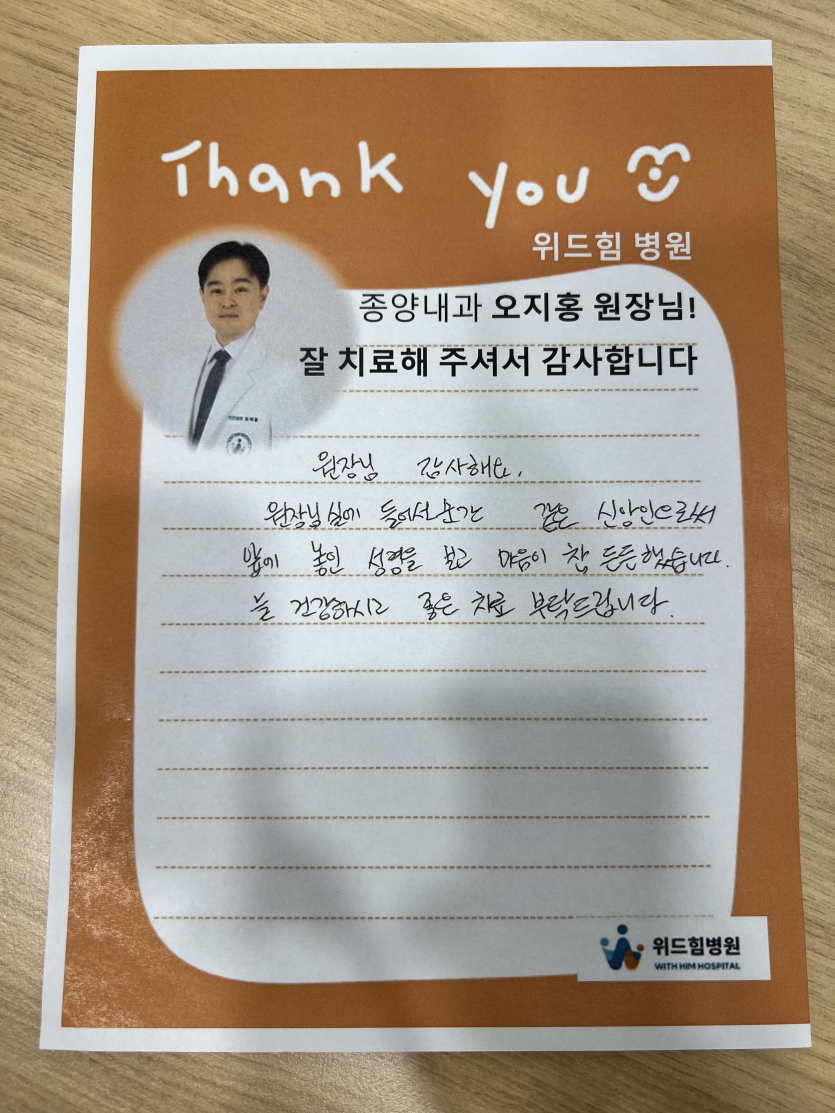 Thank you
위드힘 병원
종양내과 오지홍 원장님!
잘 치료해 주셔서 감사합니다
원장님 감사해요.
원장님실에 들어서순간 같은 신앙인으로써
앞에 놓인 성경을 보고 마음이 참 든든했습니다.
늘 건강하시고 좋은 치료 부탁드립니다.
위드힘병원
WITH HIM HOSPITAL